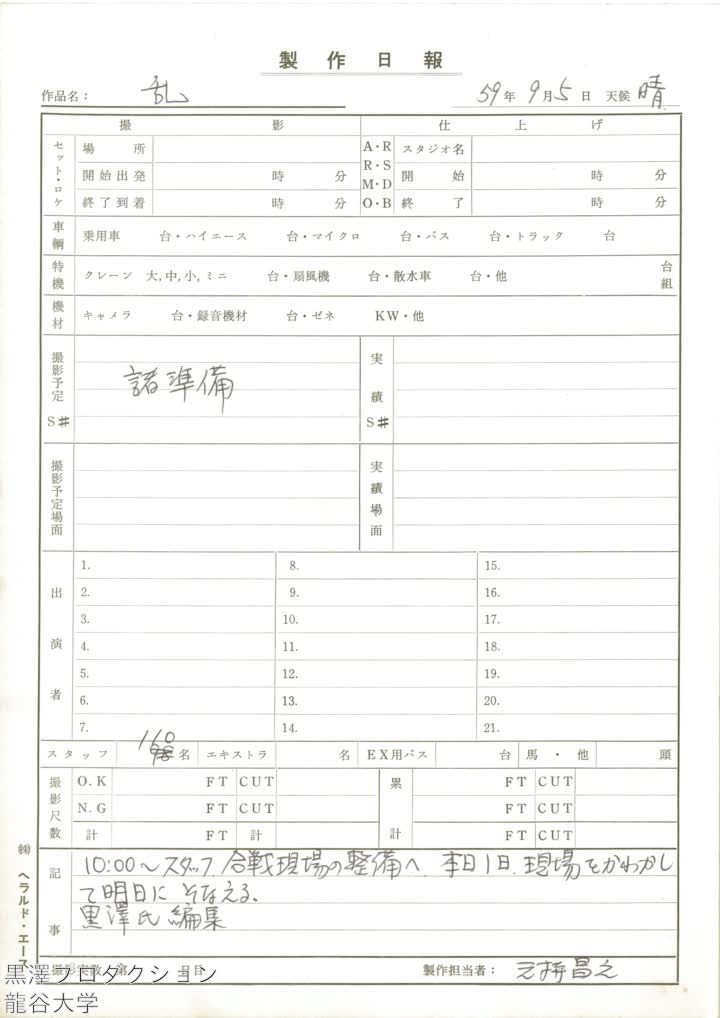 製作日報
作品名： 乱 59年 9月 5日 天候 晴
撮影 仕上げ
セット・ロケ 場所 A・R スタジオ名
開始出発 時 分 R・S 開始 時 分
M・D
終了到着 時 分 O・B 終了 時 分
車輌 乗用車 台・ハイエース 台・マイクロ 台・バス 台・トラック 台
特機 クレーン 大,中,小,ミニ 台・扇風機 台・散水車 台・他 台組
機材 キャメラ 台・録音機材 台・ゼネ KW・他
撮影予定 S# 諸準備 実績 S#
撮影予定場面 実績場面
出演者
1. 8. 15.
2. 9. 16.
3. 10. 17.
4. 11. 18.
5. 12. 19.
6. 13. 20.
7. 14. 21.
スタッフ 160名 エキストラ 名 EX用バス 台 馬・他 頭
撮影尺数 O.K FT CUT 累計 FT CUT
N.G FT CUT FT CUT
計 FT 計 FT CUT
記事
10:00〜スタッフ 合戦現場の整備へ 本日1日 現場をかわかし
て明日にそなえる。
黒澤氏 編集
撮影実数 第 日目 製作担当者：
㈱ヘラルド・エース
黒澤プロダクション
龍谷大学